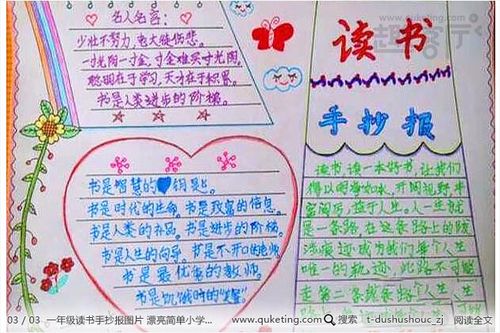 名人名言：
少壮不努力，老大徒伤悲。
一寸光阴一寸金，寸金难买寸光阴。
聪明在于学习，天才在于积累。
书是人类进步的阶梯。
www.quketing.com
趣客厅
读书
手抄报
书是智慧的钥匙。
书是时代的生命。书是致富的信息。
书是人类的礼品。书是进步的阶梯。
书是人生的向导。书是不开口的老师。
书是最优秀的教师。
书是饥饿时的
读书，读一本好书，让我们
得以明净如水，开阔视野丰
富阅历，益于人生。人一生就
是一条路，在这条路上的跋
涉痕迹成为我们每个人生
唯一的轨迹，此路不可能
走第二条就条路个人生
03 / 03 一年级读书手抄报图片 漂亮简单小学... www.quketing.com 搜索 t-dushushouc_zj 阅读全文